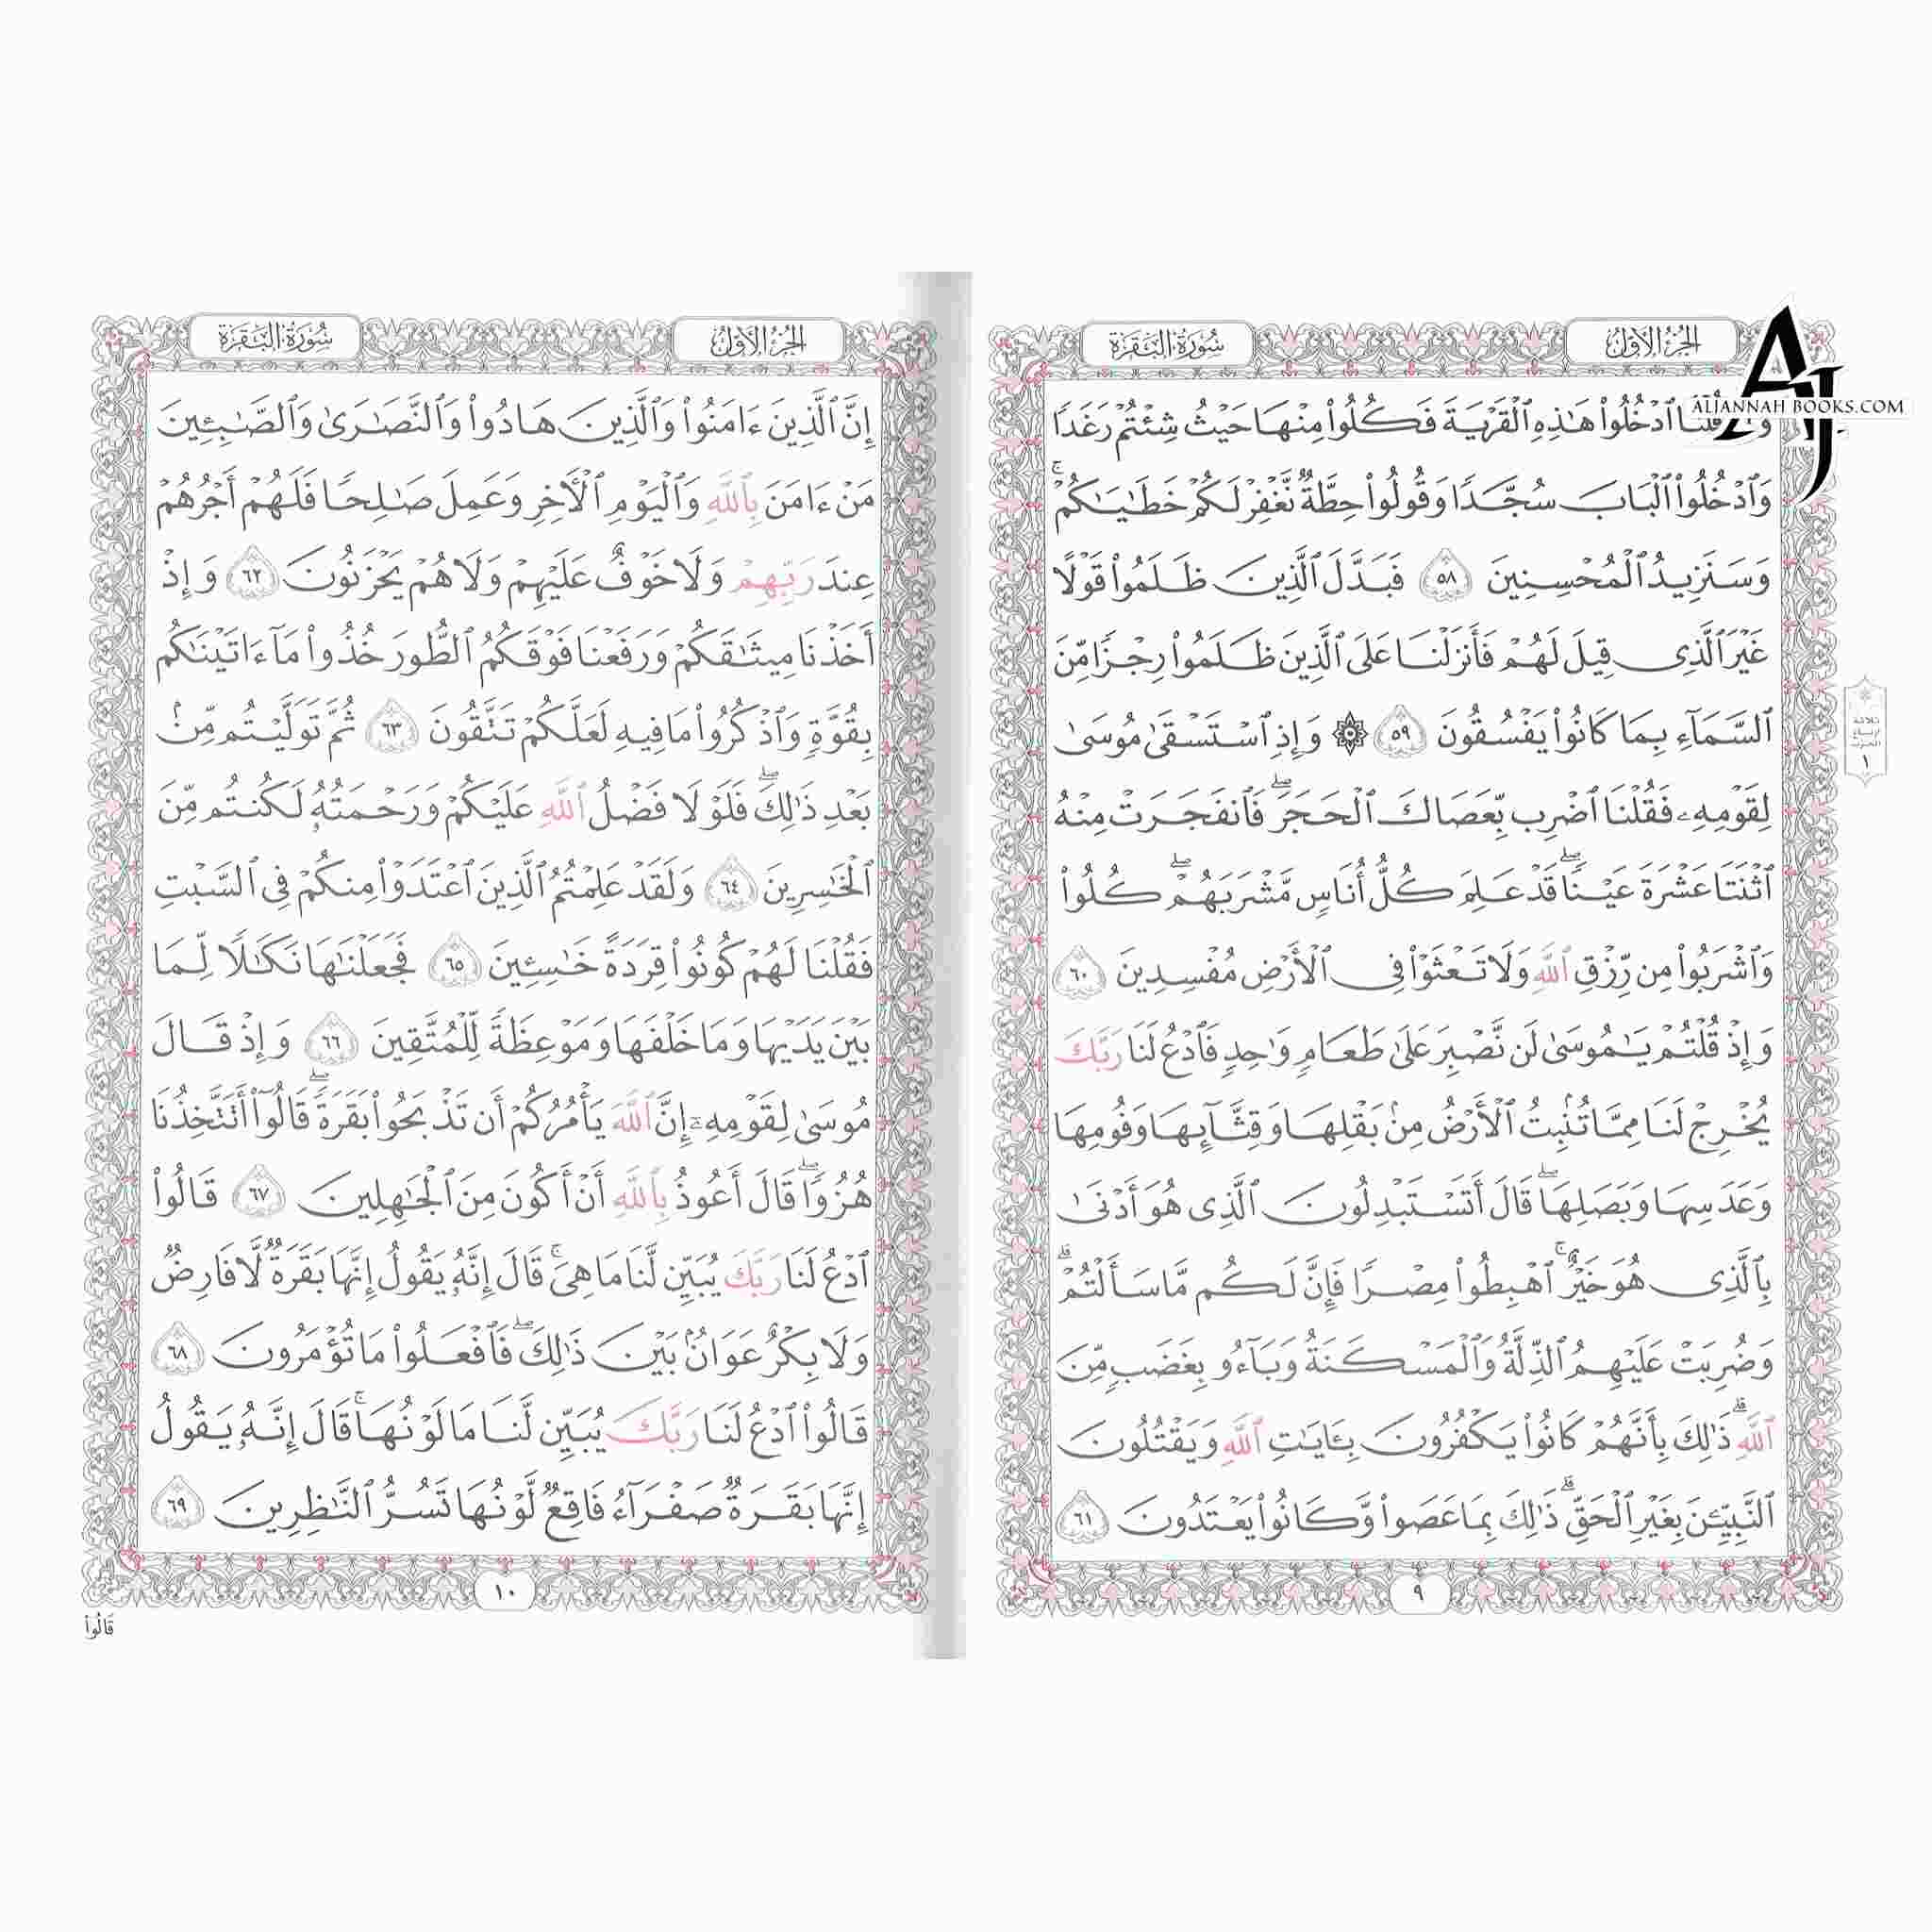 الجزء الأول
سورة البقرة
ALJANNAH BOOKS.COM
AJ
وَإِذْ قُلْنَا ٱدْخُلُوا۟ هَٰذِهِ ٱلْقَرْيَةَ فَكُلُوا۟ مِنْهَا حَيْثُ شِئْتُمْ رَغَدًا
وَٱدْخُلُوا۟ ٱلْبَابَ سُجَّدًا وَقُولُوا۟ حِطَّةٌ نَّغْفِرْ لَكُمْ خَطَٰيَٰكُمْ ۚ
وَسَنَزِيدُ ٱلْمُحْسِنِينَ ٥٨ فَبَدَّلَ ٱلَّذِينَ ظَلَمُوا۟ قَوْلًا
غَيْرَ ٱلَّذِى قِيلَ لَهُمْ فَأَنزَلْنَا عَلَى ٱلَّذِينَ ظَلَمُوا۟ رِجْزًا مِّنَ
ٱلسَّمَآءِ بِمَا كَانُوا۟ يَفْسُقُونَ ٥٩ ۞ وَإِذِ ٱسْتَسْقَىٰ مُوسَىٰ
لِقَوْمِهِۦ فَقُلْنَا ٱضْرِب بِّعَصَاكَ ٱلْحَجَرَ ۖ فَٱنفَجَرَتْ مِنْهُ
ٱثْنَتَا عَشْرَةَ عَيْنًا ۖ قَدْ عَلِمَ كُلُّ أُنَاسٍ مَّشْرَبَهُمْ ۖ كُلُوا۟
وَٱشْرَبُوا۟ مِن رِّزْقِ ٱللَّهِ وَلَا تَعْثَوْا۟ فِى ٱلْأَرْضِ مُفْسِدِينَ ٦٠
وَإِذْ قُلْتُمْ يَٰمُوسَىٰ لَن نَّصْبِرَ عَلَىٰ طَعَامٍ وَٰحِدٍ فَٱدْعُ لَنَا رَبَّكَ
يُخْرِجْ لَنَا مِمَّا تُنۢبِتُ ٱلْأَرْضُ مِنۢ بَقْلِهَا وَقِثَّآئِهَا وَفُومِهَا
وَعَدَسِهَا وَبَصَلِهَا ۖ قَالَ أَتَسْتَبْدِلُونَ ٱلَّذِى هُوَ أَدْنَىٰ
بِٱلَّذِى هُوَ خَيْرٌ ۚ ٱهْبِطُوا۟ مِصْرًا فَإِنَّ لَكُم مَّا سَأَلْتُمْ ۗ
وَضُرِبَتْ عَلَيْهِمُ ٱلذِّلَّةُ وَٱلْمَسْكَنَةُ وَبَآءُو بِغَضَبٍ مِّنَ
ٱللَّهِ ۗ ذَٰلِكَ بِأَنَّهُمْ كَانُوا۟ يَكْفُرُونَ بِـَٔايَٰتِ ٱللَّهِ وَيَقْتُلُونَ
ٱلنَّبِيِّـۧنَ بِغَيْرِ ٱلْحَقِّ ۗ ذَٰلِكَ بِمَا عَصَوا۟ وَّكَانُوا۟ يَعْتَدُونَ ٦١
٩
ثلاثة
أرباع
الحزب
١
الجزء الأول
سورة البقرة
إِنَّ ٱلَّذِينَ ءَامَنُوا۟ وَٱلَّذِينَ هَادُوا۟ وَٱلنَّصَٰرَىٰ وَٱلصَّٰبِـِٔينَ
مَنْ ءَامَنَ بِٱللَّهِ وَٱلْيَوْمِ ٱلْـَٔاخِرِ وَعَمِلَ صَٰلِحًا فَلَهُمْ أَجْرُهُمْ
عِندَ رَبِّهِمْ وَلَا خَوْفٌ عَلَيْهِمْ وَلَا هُمْ يَحْزَنُونَ ٦٢ وَإِذْ
أَخَذْنَا مِيثَٰقَكُمْ وَرَفَعْنَا فَوْقَكُمُ ٱلطُّورَ خُذُوا۟ مَآ ءَاتَيْنَٰكُم
بِقُوَّةٍ وَٱذْكُرُوا۟ مَا فِيهِ لَعَلَّكُمْ تَتَّقُونَ ٦٣ ثُمَّ تَوَلَّيْتُم مِّنۢ
بَعْدِ ذَٰلِكَ ۖ فَلَوْلَا فَضْلُ ٱللَّهِ عَلَيْكُمْ وَرَحْمَتُهُۥ لَكُنتُم مِّنَ
ٱلْخَٰسِرِينَ ٦٤ وَلَقَدْ عَلِمْتُمُ ٱلَّذِينَ ٱعْتَدَوْا۟ مِنكُمْ فِى ٱلسَّبْتِ
فَقُلْنَا لَهُمْ كُونُوا۟ قِرَدَةً خَٰسِـِٔينَ ٦٥ فَجَعَلْنَٰهَا نَكَٰلًا لِّمَا
بَيْنَ يَدَيْهَا وَمَا خَلْفَهَا وَمَوْعِظَةً لِّلْمُتَّقِينَ ٦٦ وَإِذْ قَالَ
مُوسَىٰ لِقَوْمِهِۦٓ إِنَّ ٱللَّهَ يَأْمُرُكُمْ أَن تَذْبَحُوا۟ بَقَرَةً ۖ قَالُوٓا۟ أَتَتَّخِذُنَا
هُزُوًا ۖ قَالَ أَعُوذُ بِٱللَّهِ أَنْ أَكُونَ مِنَ ٱلْجَٰهِلِينَ ٦٧ قَالُوا۟
ٱدْعُ لَنَا رَبَّكَ يُبَيِّن لَّنَا مَا هِىَ ۚ قَالَ إِنَّهُۥ يَقُولُ إِنَّهَا بَقَرَةٌ لَّا فَارِضٌ
وَلَا بِكْرٌ عَوَانٌۢ بَيْنَ ذَٰلِكَ ۖ فَٱفْعَلُوا۟ مَا تُؤْمَرُونَ ٦٨
قَالُوا۟ ٱدْعُ لَنَا رَبَّكَ يُبَيِّن لَّنَا مَا لَوْنُهَا ۚ قَالَ إِنَّهُۥ يَقُولُ
إِنَّهَا بَقَرَةٌ صَفْرَآءُ فَاقِعٌ لَّوْنُهَا تَسُرُّ ٱلنَّٰظِرِينَ ٦٩
١٠
قَالُوا۟